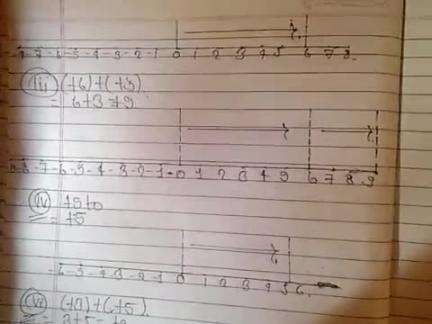 -1 0 1 2 3 4 5 6 7 8
(iii) (+6)+(+3)
= 6+3=+9
-8 -7 -6 -5 -4 -3 -2 -1 0 1 2 3 4 5 6 7 8 9
(iv) +5+0
= +5
-6 -5 -4 -3 -2 -1 0 1 2 3 4 5 6